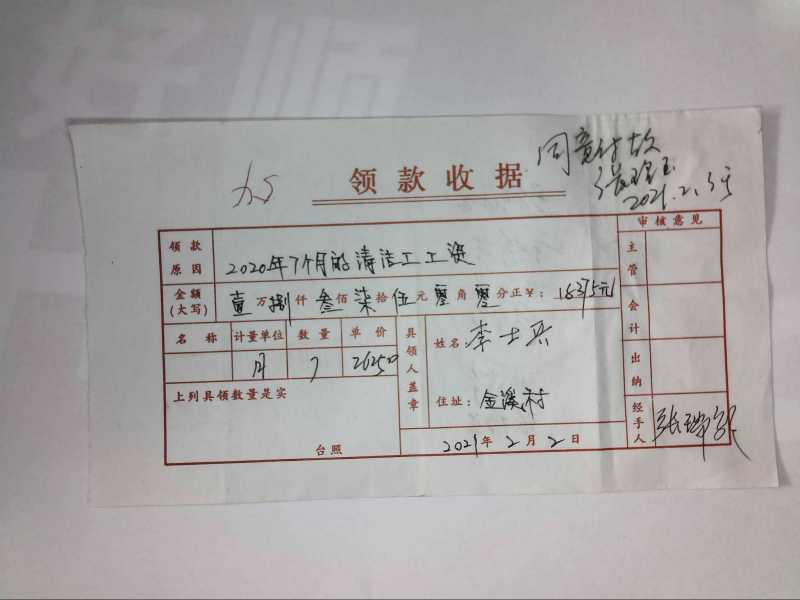 好顺
同意付款
2021.2.5
领款收据
审核意见
领款原因
2020年7个月的清洁工工资
主管
金额(大写)
壹万捌仟叁佰柒拾伍元零角零分正¥: 18375元
会计
名称 计量单位 数量 单价
月 7 2625.0
具领人盖章
姓名: 李士兵
住址: 金溪村
出纳
上列具领数量是实
台照
2021年2月2日
经手人